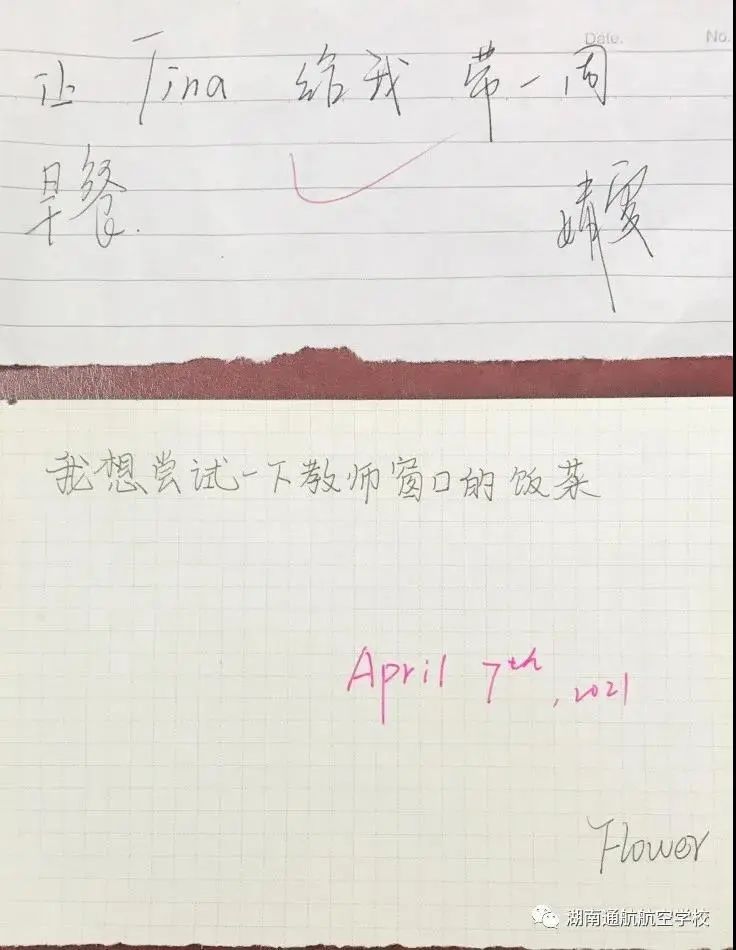 Date. No.
让 Tina 给我 带一周
早餐.
婧雯
我想尝试一下教师窗口的饭菜
April 7th, 2021
Flower
湖南通航航空学校